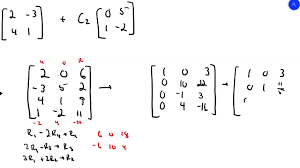 [2 -3; 4 1] + C₂ [0 5; 1 -2]
4 0 12
[2 0 6; -3 5 2; 4 1 9; 1 -2 11] → [1 0 3; 0 10 22; 0 -1 3; 0 4 -16] → [1 0 3; 0 1 11/5;
-2 4
R₁ - 2R₄ + R₁ 6 0 18
2R₁ - R₃ → R₃ -6 10 4
3R₁ + 2R₂ → R₂